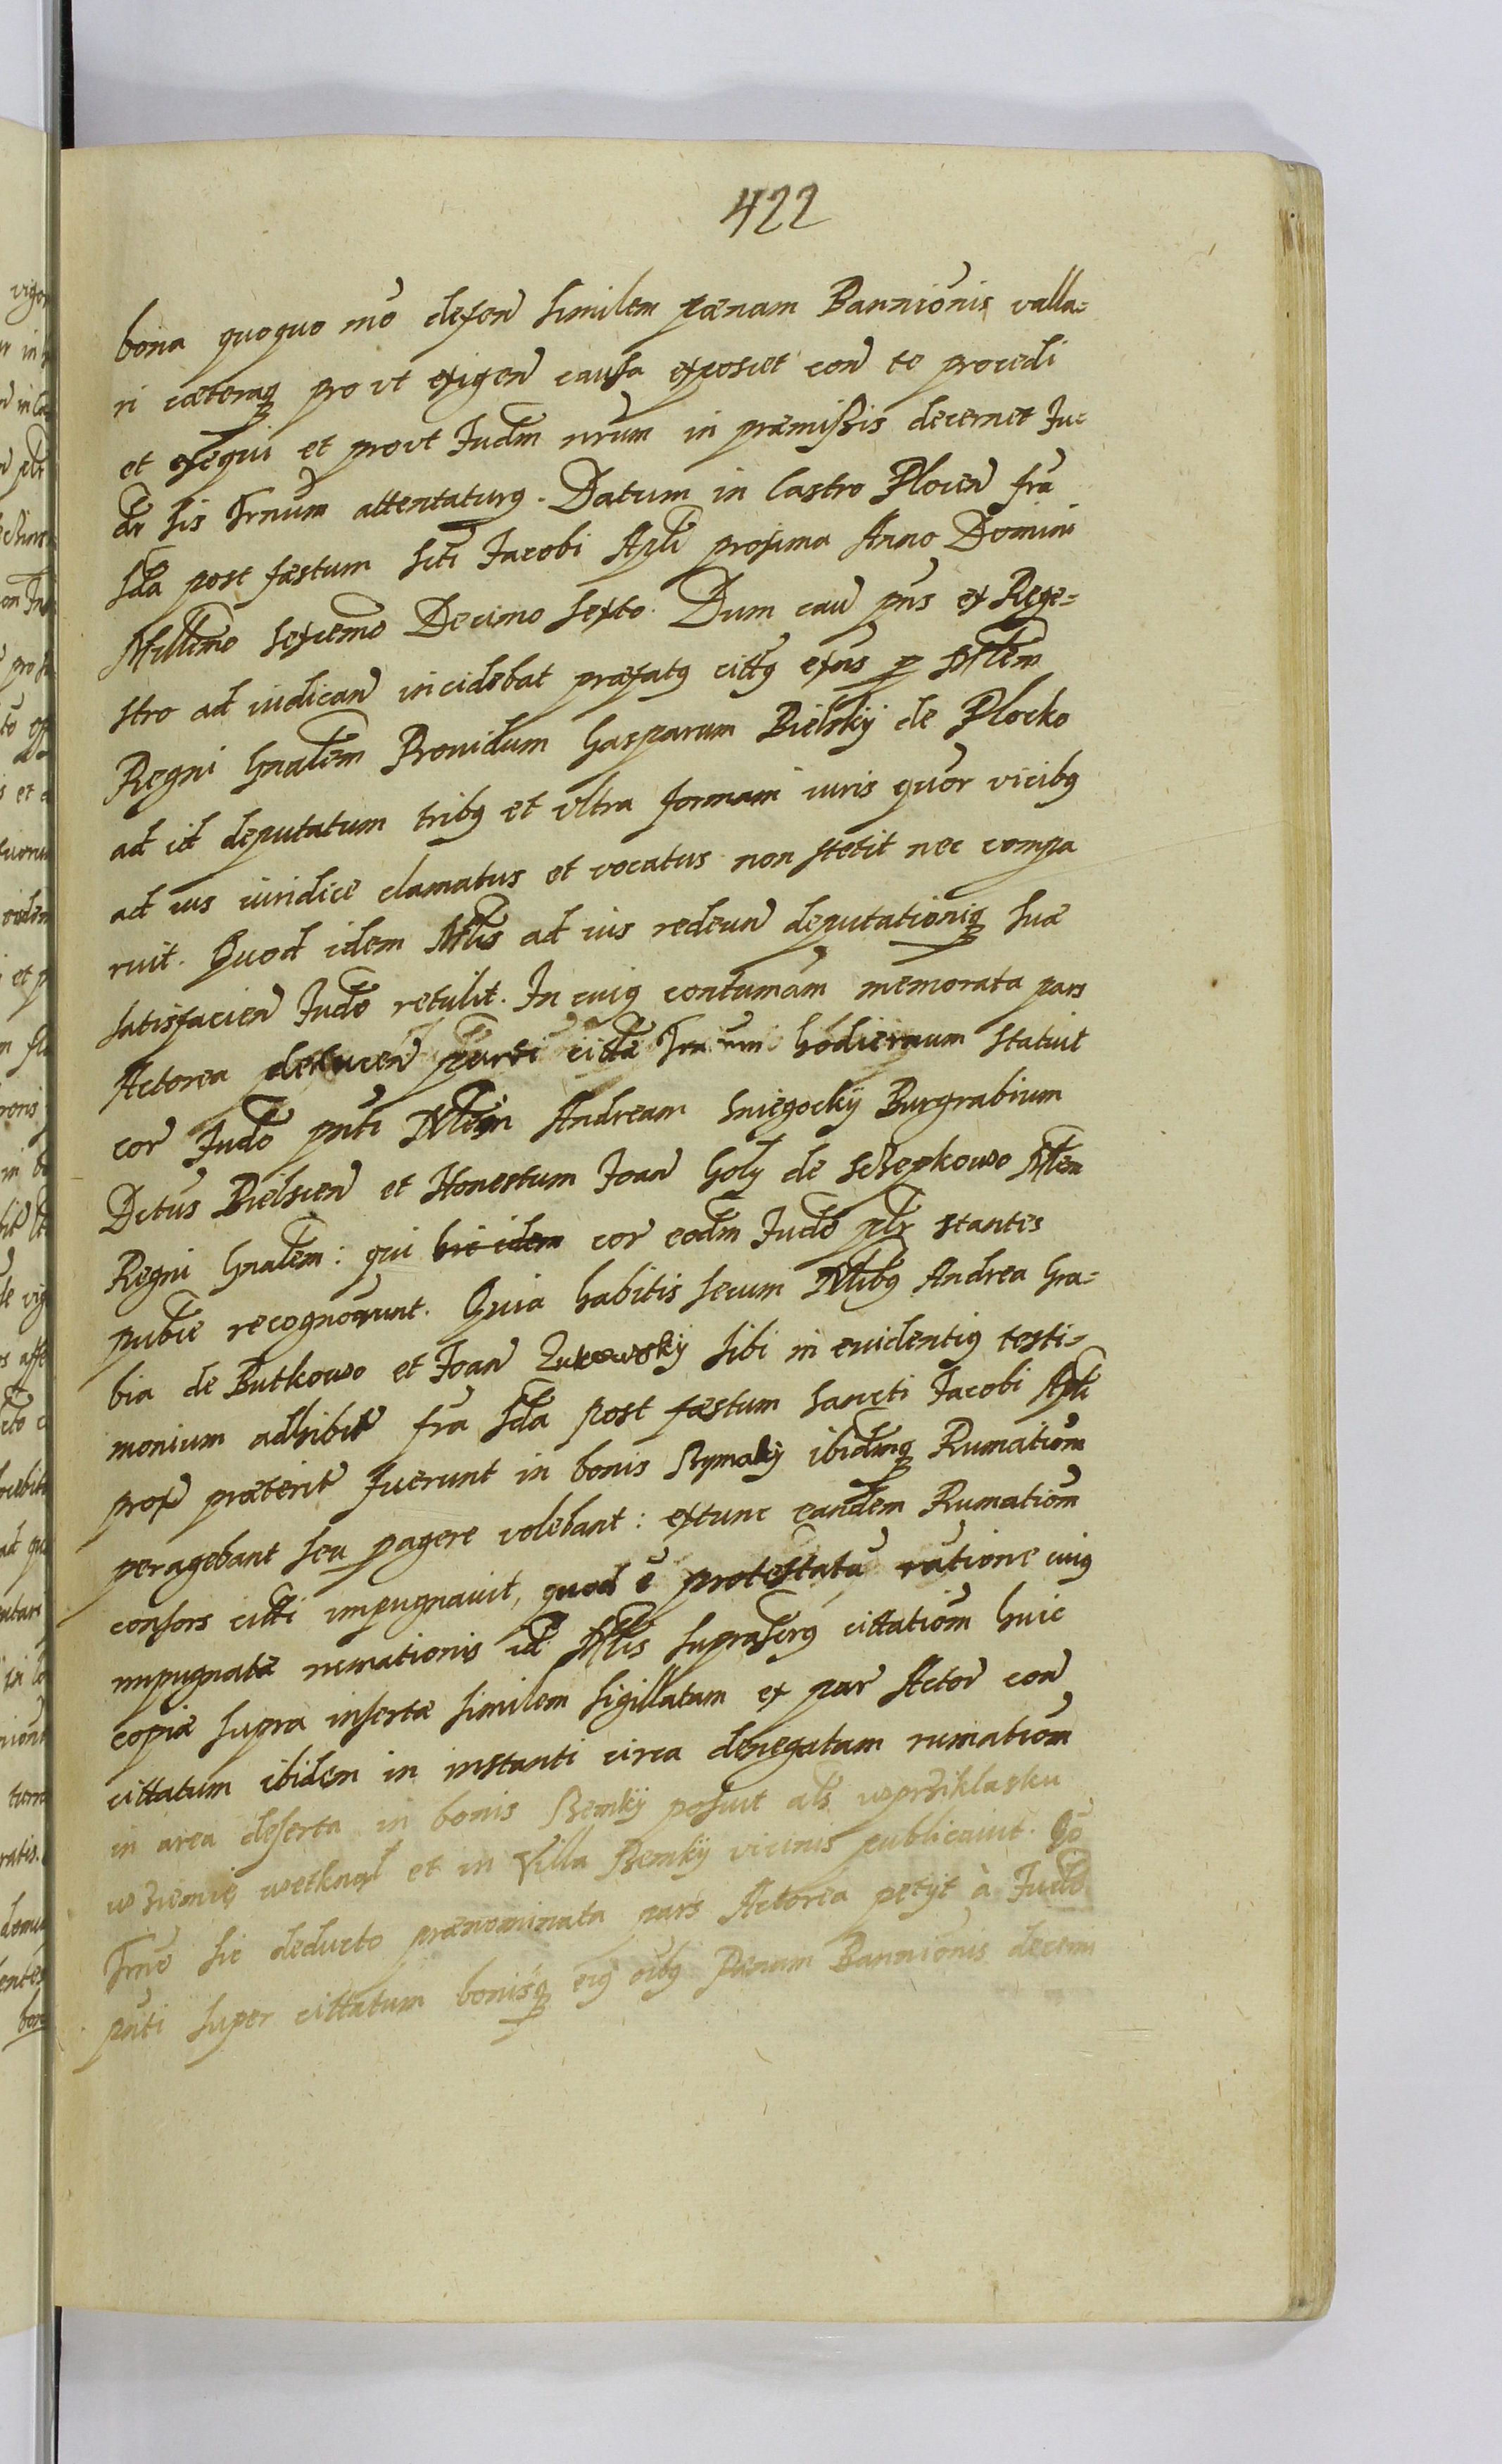 422
bona quoquo mo defen similem pœnam Bannionis valla-
ri cæteraq pro ut exigen causa exposcet con te procedi
et exequi et prout Judm nrum in præmissis decernet Ju-
dr sis Trnum attentaturg. Datum in Castro Plocen fra
scda post fæstum Scti Jacobi Apli proxima Anno Domini
Millimo sexcemo Decimo sexto. Dum cau pns ex Rege-
stro ad iudican incidebat præfatg cittg exns p Mlem
Regni Gnalem Prouidum Gasparum Bielskÿ de Plocko
ad id deputatum tribg et ultra formam iuris quor vicibg
ad ius iuridice clamatus et vocatus non stetit nec compa
ruit. Quod idem Mlis ad ius redeun deputationiq suæ
satisfacien Judo retulit. In cuig contumam memorata pars
Actorea parti citta Trnum hodiernum statuit
cor Judo pnti Mlem Andream Sniegockÿ Burgrabium
Dctus Bielscen et Honestum Joan Golÿ de Mlem
Regni Gnalem: qui hic idem cor eodm Judo plr stantes
publce recognouunt. Quia habitis secum Mlibg Andrea Gra-
bia de Butkowo et Joan Zukowskÿ sibi in euidentig testi-
monium adhibit fra scda post fæstum Sancti Jacobi Apli
prox præterit fuerunt in bonis ibidmq Rumationm
peragebant seu pagere volebant: extunc eandem Rumationm
consors citti impugnauit, quod e protestatu ratione cuig
impugnatæ rumationis id Mlis suprascrg cittationm huic
copiæ supra insertæ similem sigillatam ex par Actor con
cittatum ibidem in instanti circa denegatam rumationm
in area deserta in bonis posuit als wprziklasku
w ziemię wetknąl et in Villa vicinis publicauit. Qo
Trno sic deducto prænominata pars Actorea petÿt à Judo
pnti super cittatum bonisq eig oibg Pænam Bannionis decerni